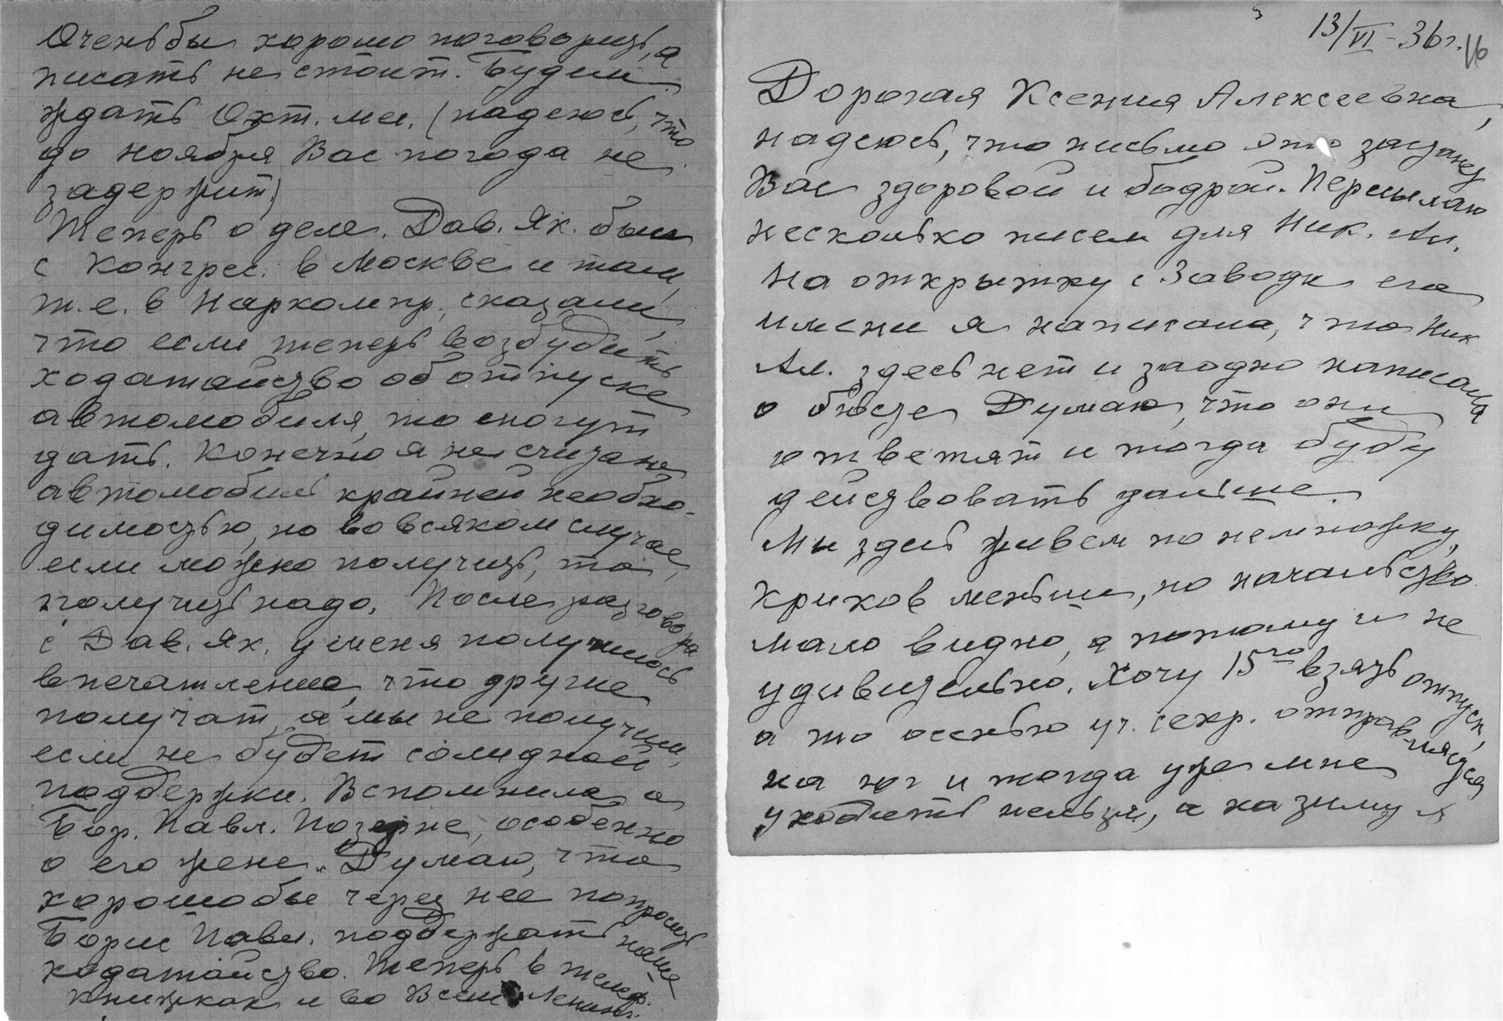 Очень бы хорошо поговорить, а
писать не стоит. Будем
ждать Окт. мес. (надеюсь, что
до ноября Вас погода не
задержит)
Теперь о деле. Дав. Як. был
с Конгрес. в Москве и там,
т.е. в Наркомпр. сказали,
что если теперь возбудить
ходатайство об отпуске
автомобиля, то смогут
дать. Конечно я не считаю
автомобиль крайней необхо-
димостью, но во всяком случае,
если можно получить, то,
получить надо. После разговора
с Дав. Як. у меня получилось
впечатление, что другие
получат, а мы не получим,
если не будет солидной
поддержки. Вспомнила о
Бор. Павл. Позерне, особенно
о его жене. Думаю, что
хорошо бы через нее попросить
Борис Павл. поддержать наше
ходатайство. Теперь в телеф.
книжках и во Всем Ленингр.
13/VI-36 г.
16
Дорогая Ксения Алексеевна,
надеюсь, что письмо это застанет
Вас здоровой и бодрой. Пересылаю
несколько писем для Ник. Ал.
На открытку с Завода его
имени я написала, что Ник
Ал. здесь нет и заодно написала
о бюсте. Думаю, что они
ответят и тогда буду
действовать дальше.
Мы здесь живем по немножку,
криков меньше, но начальство
мало видно, а потому и не
удивительно. Хочу 15го взять отпуск,
а то осенью уч. секр. отправляется
на юг и тогда уже мне
уходить нельзя, а на зиму я